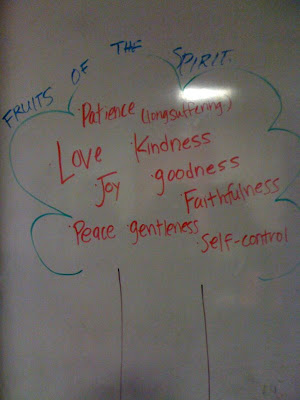 FRUITS OF THE SPIRIT.
·Patience (longsuffering)
Love ·Kindness
·Joy ·goodness
·Faithfulness
·Peace ·gentleness
·Self-control